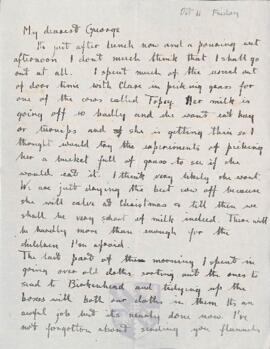 Oct 11 Friday
My dearest George
I'm just after lunch now and a pouring wet
afternoon I dont much think that I shall go
out at all. I spent much of the usual out
of door time with Clare in picking grass for
one of the cows called Topsy. Her milk is
going off so badly and she wont eat hay
or turnips and of she is getting thin so I
thought would try the experiments of picking
her a bucket full of grass to see if she
would eat it. I think very likely she wont.
We are just drying the best cow off because
she will calve at Christmas so till then we
shall be very short of milk indeed. There will
be hardly more than enough for the
children I'm afraid.
The last part of the morning I spent in
going over old cloths sorting out the ones to
send to Birkenhead and tidying up the
boxes with both our cloths in them Its an
awful job but its nearly done now. I've
not forgotten about sending you flannels